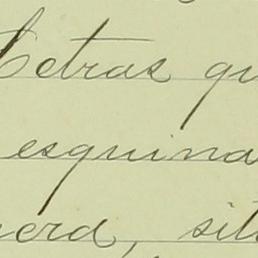 Letras qu
esquina
nera, sit